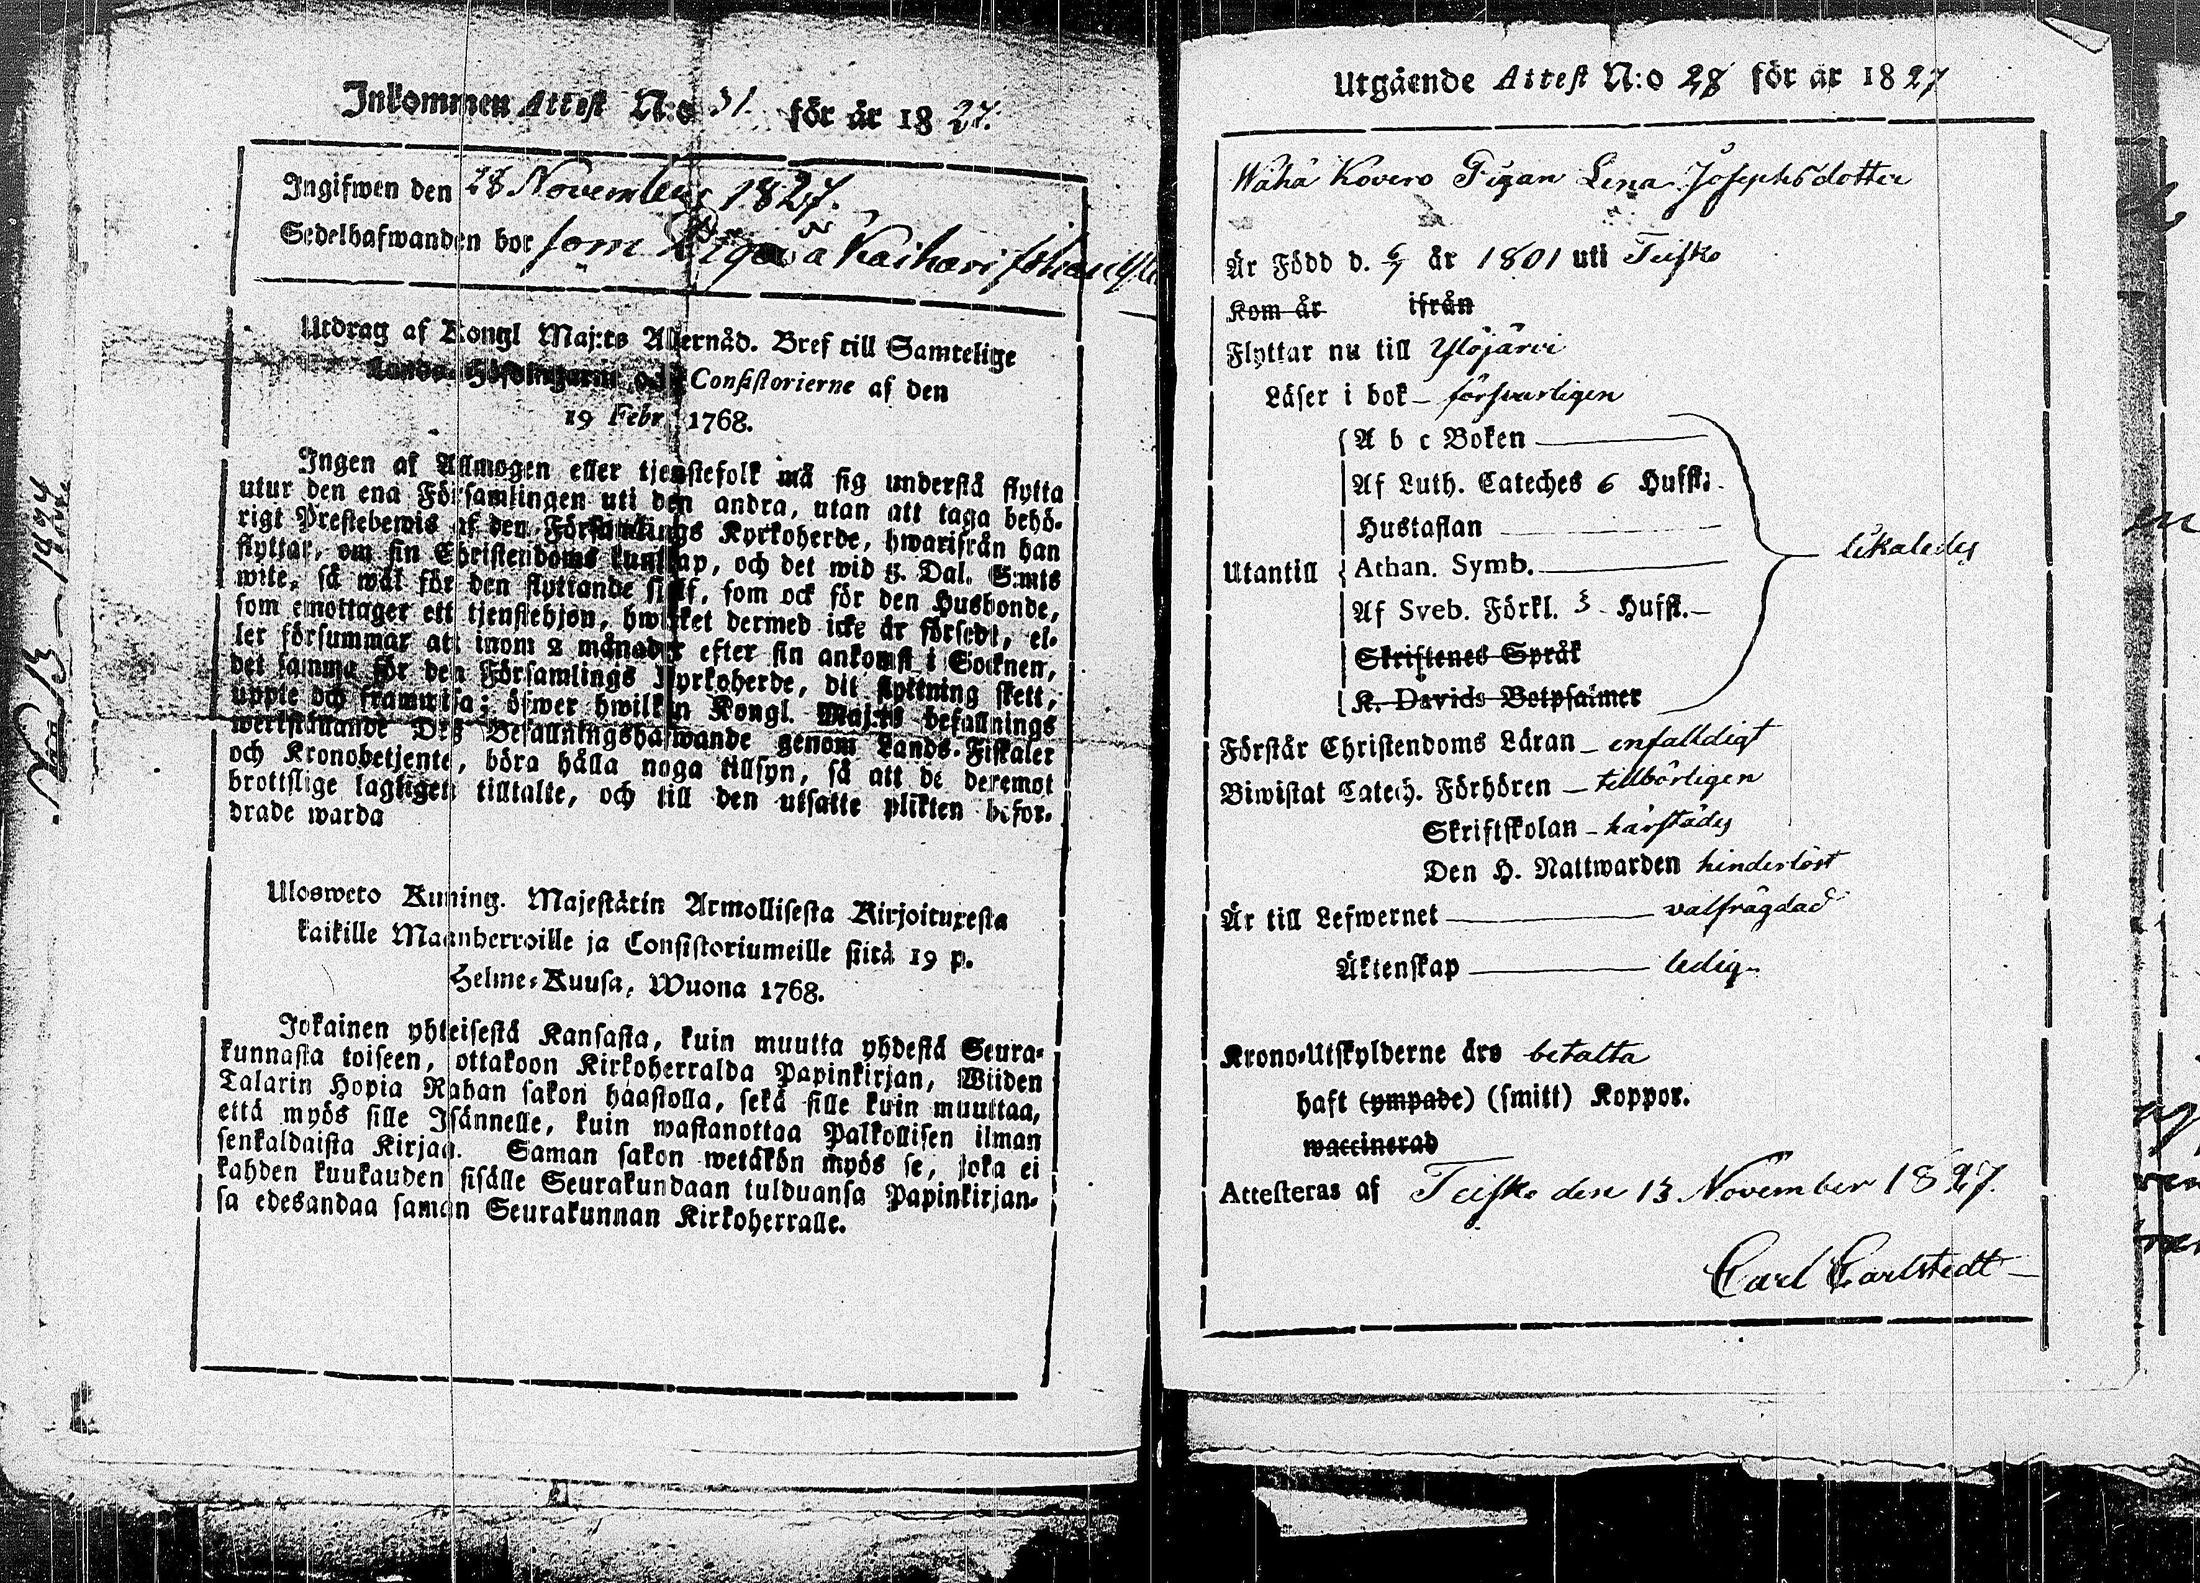 Inkommen Attest N:o 31. för år 1827.
Ingifwen den 28 November 1827.
Sedelhafwanden bor som Piga å Kaihari
Utdrag af Kongl Maj:ts Allernåd. Bref till Samtelige
Lands-Höfdingarne och Consistorierne af den
19 Febr. 1768.
Ingen af Allmogen eller tjenstefolk må sig understå flytta
utur den ena Församlingen uti den andra, utan att taga behö-
rigt Prestebewis af den Församlings Kyrkoherde, hwarifrån han
flyttar, om sin Christendoms kunskap, och det wid 5. Dal. S:mts
wite, så wäl för den flyttande sielf, som ock för den Husbonde,
som emottager ett tjenstehjon, hwilket dermed icke är försedt, el-
ler försummar att inom 2 månader efter sin ankomst i Socknen,
det samma för den Församlings Kyrkoherde, dit flyttning skett,
uppte och framwisa; öfwer hwilken Kongl. Maj:ts befallnings
werkställande Deß Befallningshafwande genom Lands-Fiskaler
och Kronobetjente, böra hålla noga tillsyn, så att de deremot
brottslige lagligen tilltalte, och till den utsatte plikten befor-
drade warda
Ulosweto Kuning. Majestätin Armollisesta Kirjoituxesta
kaikille Maanherroille ja Consistoriumeille siitä 19 p.
Helme-Kuusa, Wuona 1768.
Jokainen yhteisestä Kansasta, kuin muutta yhdestä Seura-
kunnasta toiseen, ottakoon Kirkoherralda Papinkirjan, Wiiden
Talarin Hopia Rahan sakon haastolla, sekä sille kuin muuttaa,
että myös sille Isännelle, kuin wastanottaa Palkollisen ilman
senkaldaista Kirjaa. Saman sakon wetäkön myös se, joka ei
kahden kuukauden sisälle Seurakundaan tulduansa Papinkirjan-
sa edesandaa saman Seurakunnan Kirkoherralle.
Utgående Attest N:o 28 för år 1827
Wähä Kovero Pigan Lena Josephsdotter
Är Född d. 6/7 år 1801 uti Teisko
Kom år ifrån
Flyttar nu till Ylöjärvi
Läser i bok – försvarligen
A b c Boken
Af Luth. Cateches 6 Hufst:
Hustaflan
Utantill Athan. Symb. likaledes
Af Sveb. Förkl. 3 Hufst.
Skriftenes Språk
K. Davids Botpsalmer
Förstår Christendoms Läran – enfalldigt
Biwistat Catech. Förhören – tillbörligen
Skriftskolan – härstädes
Den H. Nattwarden hinderlöst
Är till Lefwernet välfrägdad
Äktenskap ledig
Krono-Utskylderne äro betalta
haft (ympade) (smitt) Koppor.
waccinerad
Attesteras af Teisko den 13 November 1827.
Carl Carlstedt